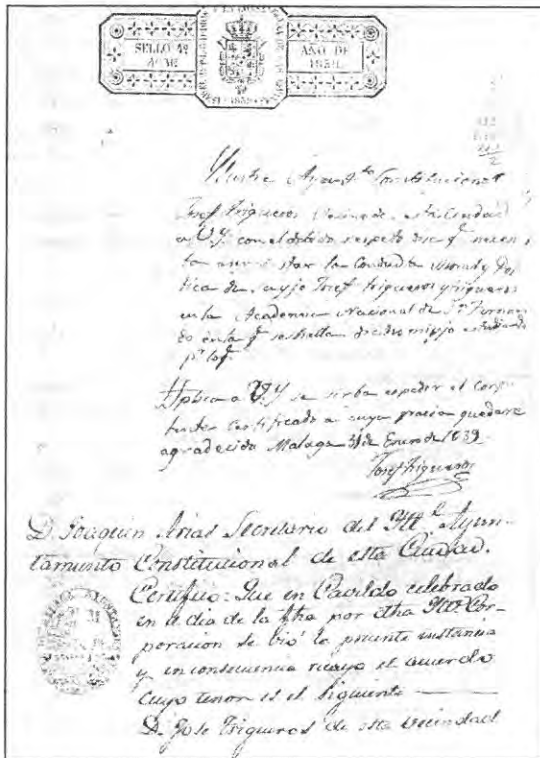 SELLO 4º
AÑO DE
1839.
Ylustre Ayunt.to Constitucional
Josef Trigueros Vecino de esta Ciudad
a V.Y. con el debido respeto dice q.e necesi
ta acreditar la Conducta Moral y Poli
tica de su yjo Josef Trigueros y Trigueros
en la Academia Nacional de S.n Fernan
do en la q.e se halla dicho mi yjo estudiando
p.r lo q.e
Suplica a V.Y. se sirba espedir el Corres
certificado a cuya gracia quedara
agradecido Malaga 31 de Enero de 1839.
Josef Trigueros
D. Joaquin Arias Secretario del Ylt.e Ayun-
tamiento Constitucional de esta Ciudad.
Certifico: Que en Cavildo celebrado
en el dia de la fha por dha Ylt.e Cor-
poracion se vió la presente instancia
y en consecuencia recayo el acuerdo
cuyo tenor es el siguiente
D. Jose Trigueros de esta vecindad